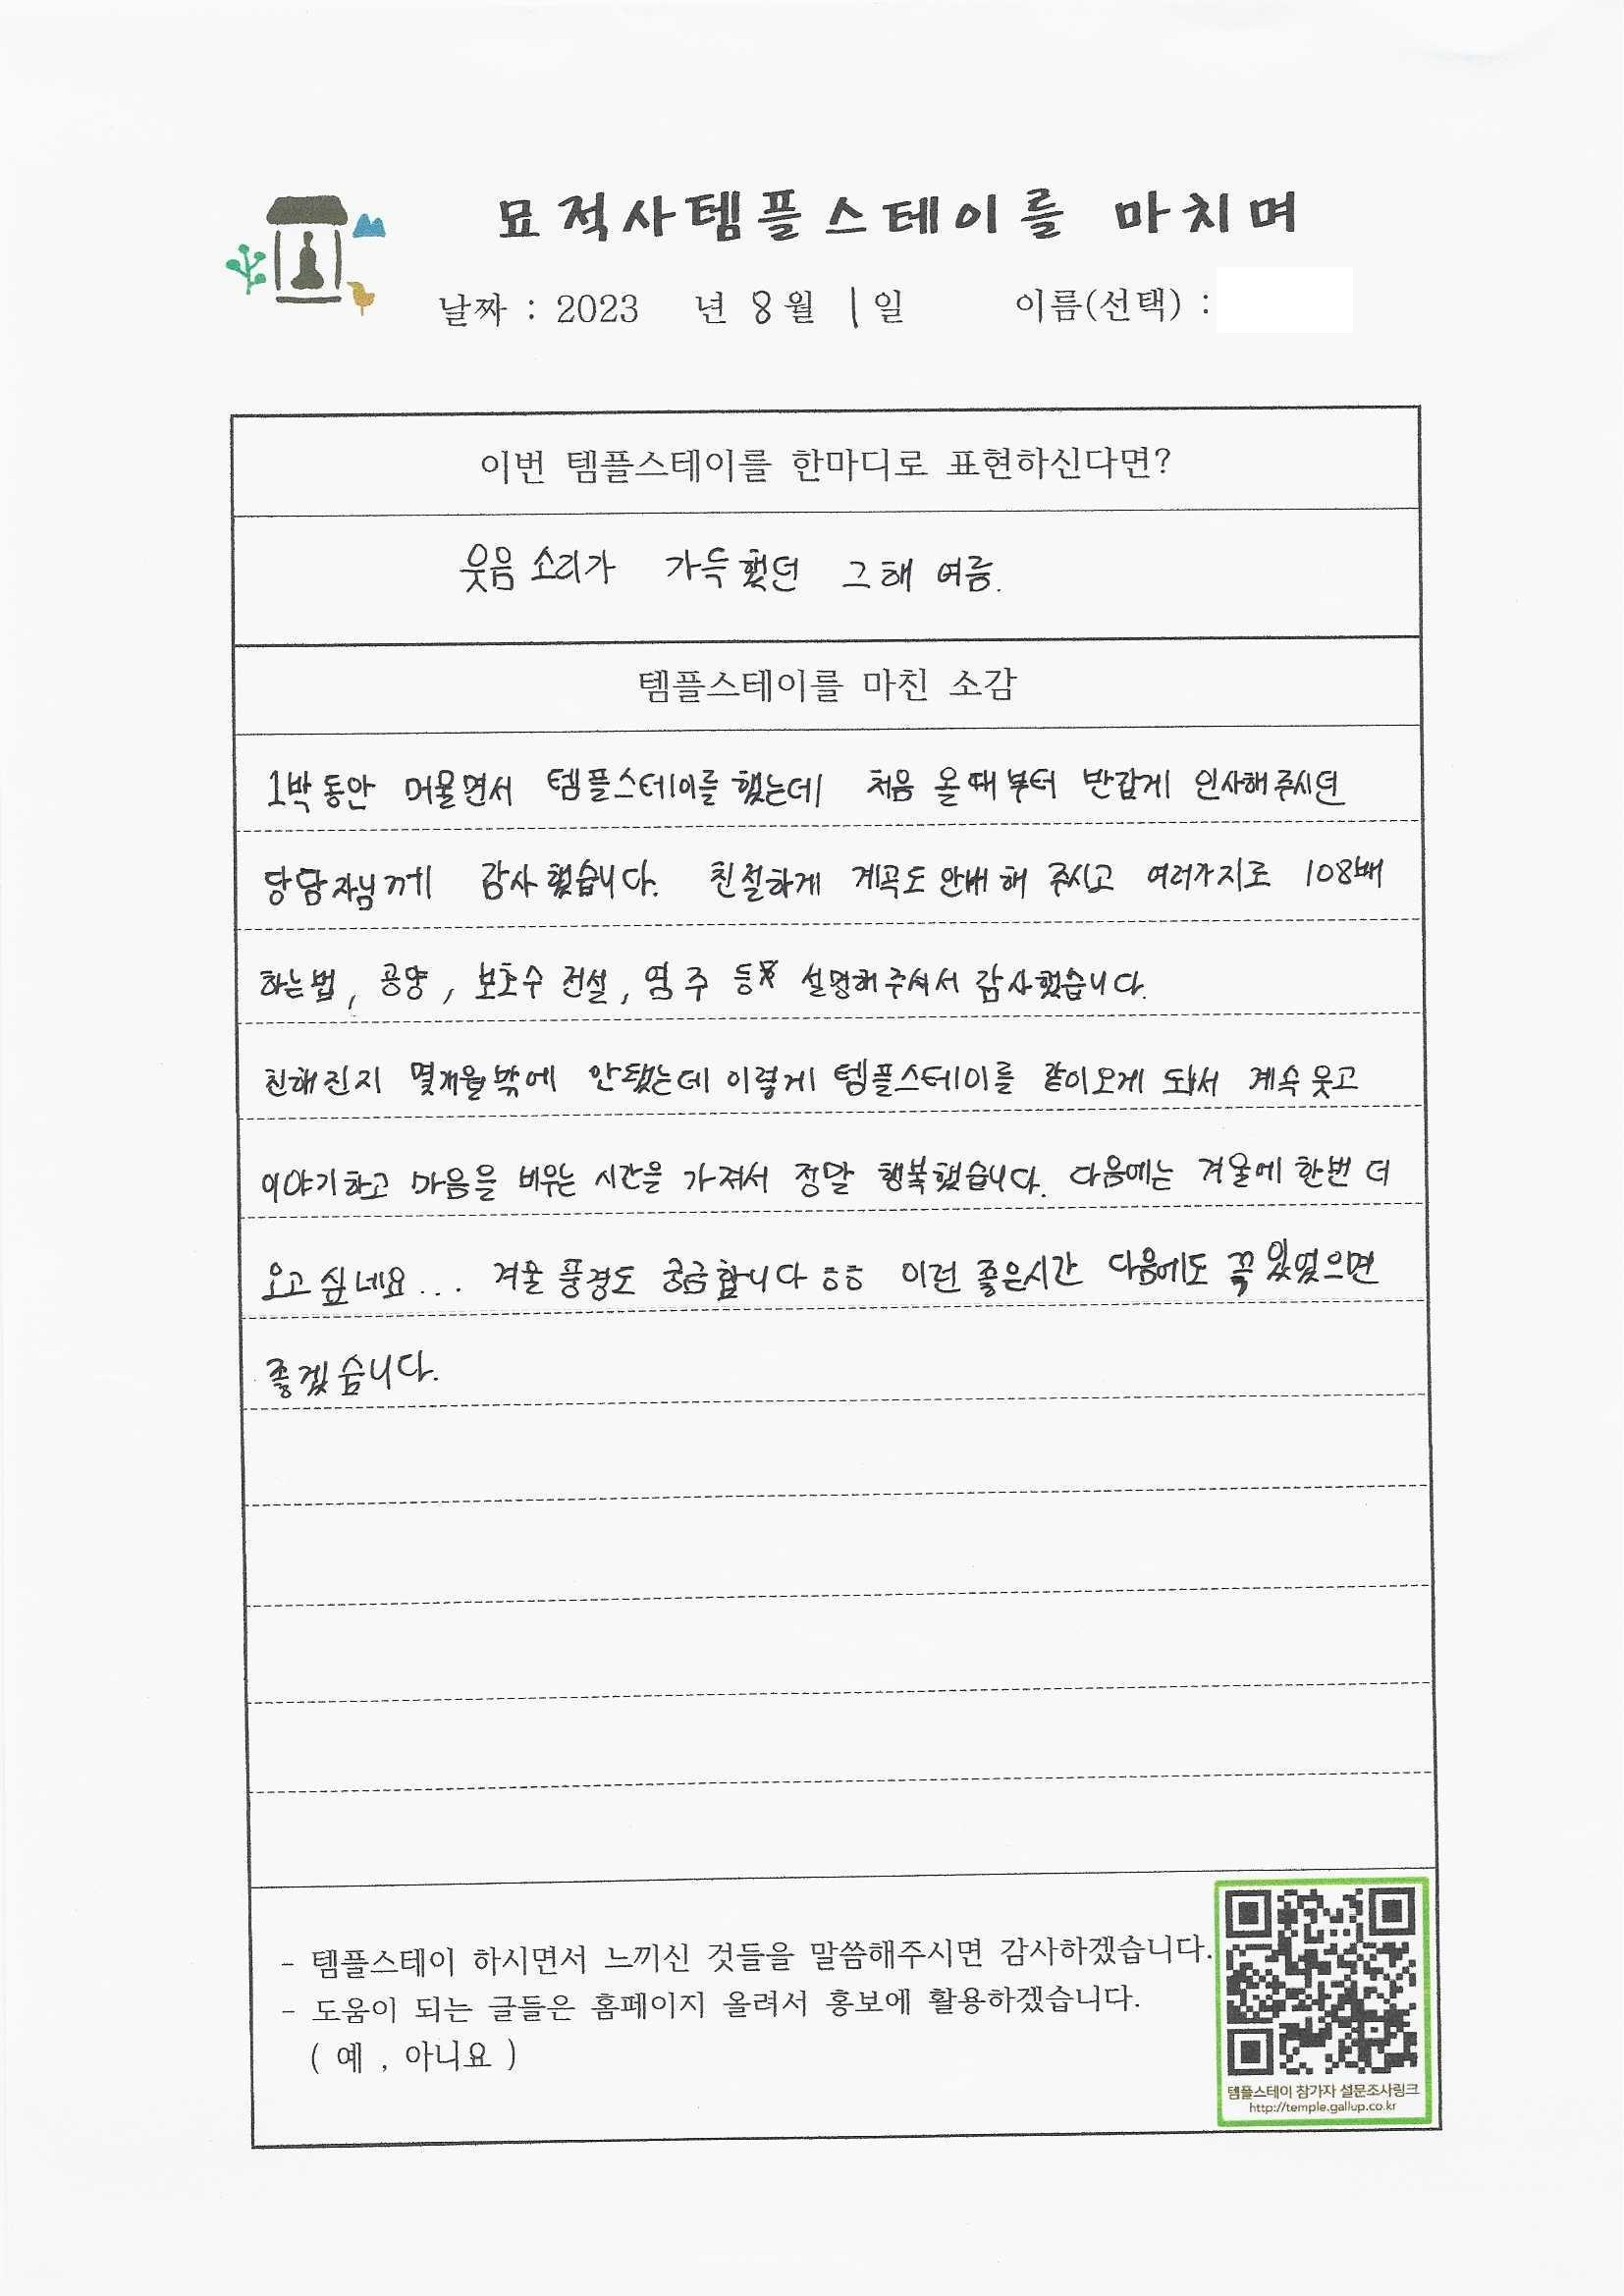 묘적사템플스테이를 마치며
날짜 : 2023 년 8월 1일 이름(선택) :
이번 템플스테이를 한마디로 표현하신다면?
웃음 소리가 가득했던 그해 여름.
템플스테이를 마친 소감
1박 동안 머물면서 템플스테이를 했는데 처음 올때부터 반갑게 인사해주시던
당담자님께 감사했습니다. 친절하게 계곡도 안내해 주시고 여러가지로 108배
하는법, 공양, 보호수 전설, 염주 등 설명해주셔서 감사했습니다.
친해진지 몇개월밖에 안됐는데 이렇게 템플스테이를 같이오게 돼서 계속 웃고
이야기하고 마음을 비우는 시간을 가져서 정말 행복했습니다. 다음에는 겨울에 한번 더
오고싶네요... 겨울 풍경도 궁금합니다 ㅎㅎ 이런 좋은시간 다음에도 꼭 있었으면
좋겠습니다.
- 템플스테이 하시면서 느끼신 것들을 말씀해주시면 감사하겠습니다.
- 도움이 되는 글들은 홈페이지 올려서 홍보에 활용하겠습니다.
( 예 , 아니요 )
템플스테이 참가자 설문조사링크
http://temple.gallup.co.kr